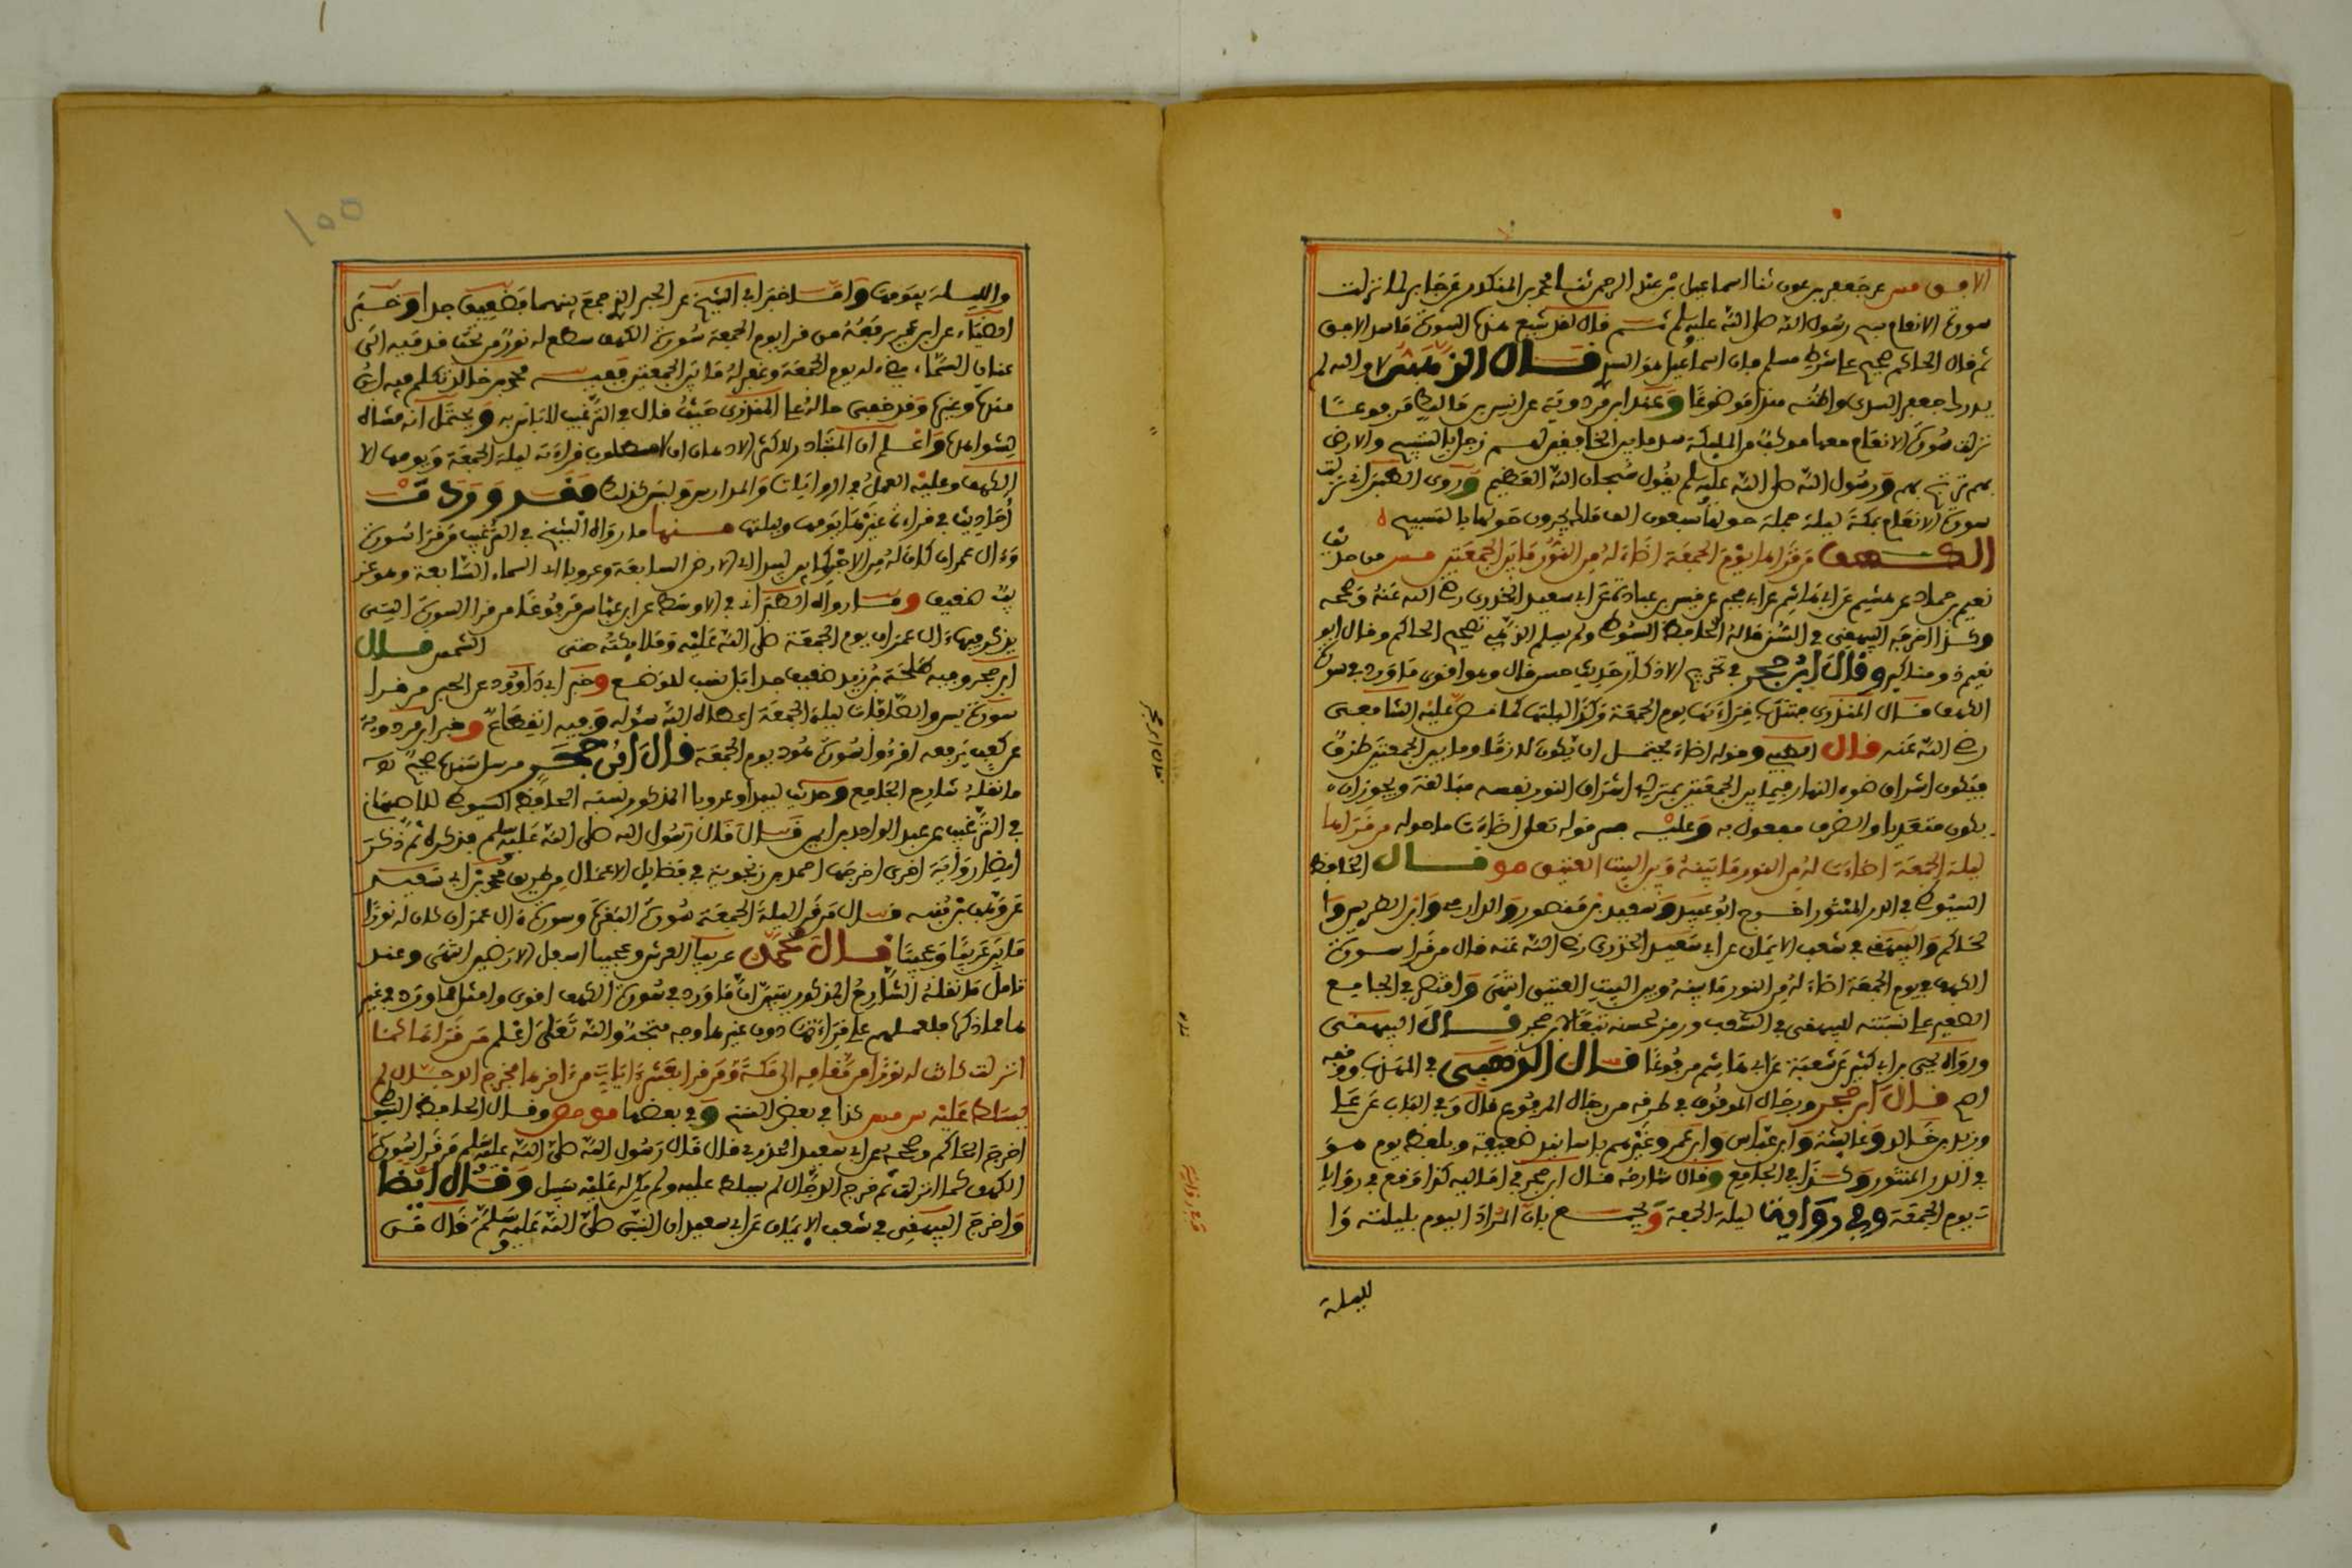 الافق مس عن جعفر بن عون ثنا اسماعيل بن عبد الرحمن ثنا محمد بن المنكدر عن جابر لما نزلت
سورة الانعام سبح رسول الله صلى الله عليه وسلم ثم قال لقد شيع هذه السورة ما سد الافق
ثم قال الحاكم صحيح على شرط مسلم فان اسماعيل هو السدي قال الذهبي لا والله لم
يدرك جعفر السدي واظنه هذا موضوعا وعند ابن مردوية عن انس بن مالك مرفوعا
نزلت سورة الانعام معها موكب من الملايكة سد ما بين الخافقين لهم زجل بالتسبيح والارض
بهم ترتج ورسول الله صلى الله عليه وسلم يقول سبحان الله العظيم وروى الطبراني نزلت
سورة الانعام بمكة ليلة جملة حولها سبعون الف ملك يجرون حولها بالتسبيح
الكهف من قرأها يوم الجمعة اضاء له من النور ما بين الجمعتين مس من حديث
نعيم بن حماد عن هشيم عن ابي هاشم عن ابي مجلز عن قيس بن عباد عن ابي سعيد الخدري رضي الله عنه وصححه
وكذا اخرجه البيهقي في السنن قاله الحافظ السيوطي ولم يسلم الذهبي تصحيح الحاكم وقال ابو
نعيم ذو مناكير وقال ابن حجر في تخريج الاذكار حديث حسن قال وهو اقوى ما ورد في سورة
الكهف قال المنذري قراءتها يوم الجمعة وكذا ليلتها كما نص عليه الشافعي
رضي الله عنه قال الطيبي وقوله اضاء يحتمل ان يكون لازما وما بين الجمعتين ظرف
فيكون اشراق ضوء النهار فيما بين الجمعتين بمنزلة اشراق النور نفسه مبالغة ويجوز ان
يكون متعديا والظرف مفعول به وعليه فسر قوله تعلى اضاءت ما حوله من قرأها
ليلة الجمعة اضاءت له من النور ما بينه وبين البيت العتيق مو قال الحافظ
السيوطي في الدر المنثور اخرج ابو عبيد وسعيد بن منصور والدارمي وابن الضريس وا
لحاكم والبيهقي في شعب الايمان عن ابي سعيد الخدري رضي الله عنه قال من قرا سورة
الكهف في يوم الجمعة اضاء له من النور ما بينه وبين البيت العتيق انتهى واقتصر في الجامع
الصغير على نسبته للبيهقي في الشعب ورمز لحسنه تبعا لابن حجر قال البيهقي
ورواه يحيى بن ابي كثير عن شعبة عن ابي هاشم مرفوعا قال الذهبي في المهذب ووقفه
اصح قال ابن حجر ورجال الموقوف في طرقه من رجال المرفوع قال وفي الباب عن علي
وزيد بن خالد وعايشة وابن عباس وابن عمر وغيرهم باسانيد ضعيفة وبلفظ يوم هو
في الدر المنثور وكذا في الجامع وقال شارحه قال ابن حجر في اماليه كذا وقع في روايا
ت يوم الجمعة وفي رواية ليلة الجمعة ويجمع بان المراد اليوم بليلته وا
لليلة
قال ابن حجر
١٥٥
والليلة بيومها واما خبر ابي الشيخ عن الحبر الذي جمع بينهما فضعيف جدا وخبر
الضياء عن ابن عمر يرفعه من قرا يوم الجمعة سورة الكهف سطع له نور من تحت قدميه الى
عنان السماء يضيء له يوم الجمعة وغفر له ما بين الجمعتين ففيه محمد بن خالد تكلم فيه ابن
مندة وغيره وقد خفى حاله على المنذري حيث قال في الترغيب لا باس به ويحتمل انه مشاه
لشواهده واعلم ان المتبادر الى اكثر الاذهان ان المطلوب قراءته ليلة الجمعة ويومها
الكهف وعليه العمل في الروايات والمدارس وليس كذلك فقد وردت
احاديث في قراءة غيرها يومها وليلتها منها ما رواه التيمي في الترغيب من قرا سورة
وءال عمران كان له من الاجر كما بين لبيدا اي الارض السابعة وعروبا اي السماء السابعة وهو غر
يب ضعيف ومنها رواه الطبراني في الاوسط عن ابن عباس مرفوعا من قرا السورة التي
يذكر فيها ءال عمران يوم الجمعة صلى الله عليه وملايكته حتى الشمس قال
ابن حجر وفيه طلحة بن زيد ضعيف جدا بل نسب للوضع وخبر ابي داوود عن الحبر من قرا
سورة يس والصافات ليلة الجمعة اعطاه الله سؤله وفيه انقطاع وخبر ابن مردوية
عن كعب يرفعه اقرءوا سورة هود يوم الجمعة قال ابن حجر مرسل سنده صحيح
ما نقله شارح الجامع وحديث لبيدا وعروبا المذكور نسبه الحافظ السيوطي للاصبهاني
في الترغيب عن عبد الواحد بن ايمن قال قال رسول الله صلى الله عليه وسلم فذكره ثم ذكر
ايضا رواية اخرى اخرجها احمد بن زنجوية في فضايل الاعمال من طريق محمد بن ابي سعيد
عن وهب بن منبه قال من قرا ليلة الجمعة سورة البقرة وسورة ءال عمران كان له نورا
ما بين عريبا وعجيبا قال محمد عريبا العرش وعجيبا اسفل الارضين انتهى وعند
تامل ما نقله الشارح المذكور يتبين ان ما ورد في سورة الكهف اقوى وامثل مما ورد في غير
ها مما ذكر فلعملهم على قراءتها دون غيرها وجه متجه والله تعلى اعلم من قرأها كما
انزلت كانت له نورا من مقامه الى مكة ومن قرا بعشر ءايات من ءاخرها فخرج الدجال لم
يسلط عليه س مس كذا في بعض النسخ وفي بعضها مو مص وقال الحافظ السيوطي
اخرج الحاكم وصححه عن ابي سعيد الخدري قال قال رسول الله صلى الله عليه وسلم من قرا سورة
الكهف كما انزلت ثم خرج الدجال لم يسلط عليه ولم يكن له عليه سبيل وقال ايضا
واخرج البيهقي في شعب الايمان عن ابي سعيد ان النبي صلى الله عليه وسلم قال من